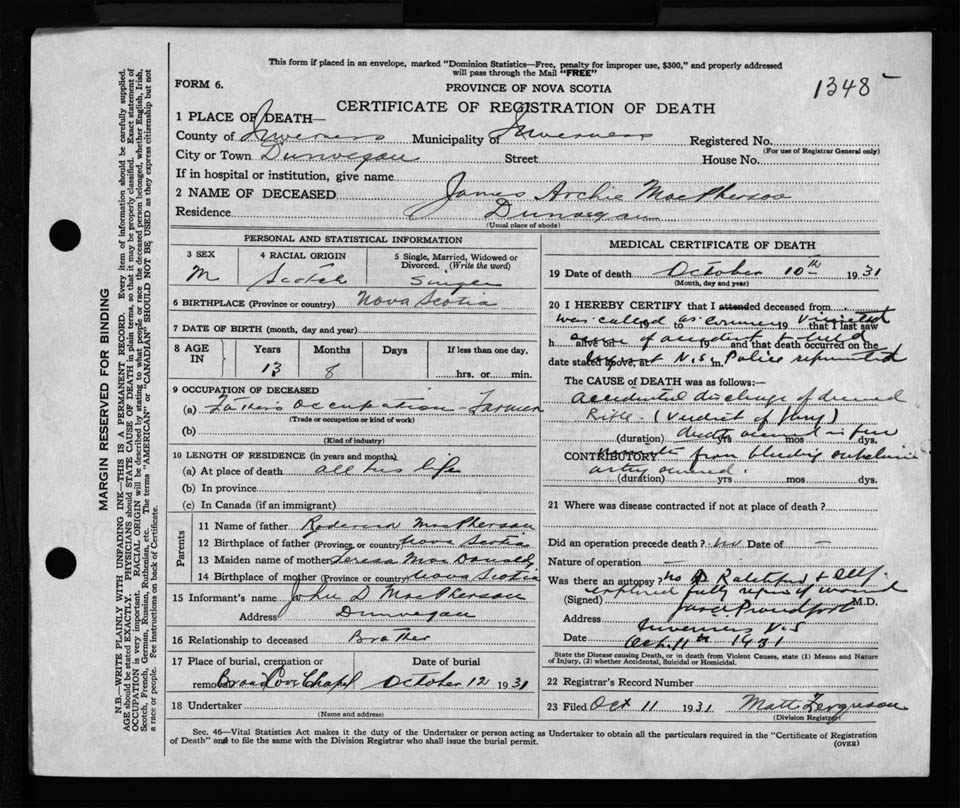 This form if placed in an envelope, marked "Dominion Statistics—Free, penalty for improper use, $300," and properly addressed
will pass through the Mail "FREE"
FORM 6.
PROVINCE OF NOVA SCOTIA
1348
CERTIFICATE OF REGISTRATION OF DEATH
1 PLACE OF DEATH—
County of Inverness Municipality of Inverness Registered No.
(For use of Registrar General only)
City or Town Dunvegan Street House No.
If in hospital or institution, give name
2 NAME OF DECEASED James Archie MacPherson
Residence Dunvegan
(Usual place of abode)
PERSONAL AND STATISTICAL INFORMATION
3 SEX 4 RACIAL ORIGIN 5 Single, Married, Widowed or
Divorced. (Write the word)
M Scotch Single
6 BIRTHPLACE (Province or country) Nova Scotia
7 DATE OF BIRTH (month, day and year)
8 AGE IN Years Months Days If less than one day,
13 8 hrs. or min.
9 OCCUPATION OF DECEASED
(a) Father's Occupation - Farmer
(Trade or occupation or kind of work)
(b)
(Kind of industry)
10 LENGTH OF RESIDENCE (in years and months)
(a) At place of death all his life
(b) In province
(c) In Canada (if an immigrant)
Parents
11 Name of father Roderick MacPherson
12 Birthplace of father (Province or country) Nova Scotia
13 Maiden name of mother Teresa MacDonald
14 Birthplace of mother (Province or country) Nova Scotia
15 Informant's name John D MacPherson
Address Dunvegan
16 Relationship to deceased Brother
17 Place of burial, cremation or Date of burial
removal Broad Cove Chapel October 12 1931
18 Undertaker
(Name and address)
MEDICAL CERTIFICATE OF DEATH
19 Date of death October 10th 1931
(Month, day and year)
20 I HEREBY CERTIFY that I attended deceased from
was called as coroner 19 to 19 that I last saw
h alive on of accident 19 and that death occurred on the
date stated above, at N.S. m. Police
The CAUSE OF DEATH was as follows:—
accidental discharge of
Rifle. (Verdict of Jury)
(duration) death yrs mos in few dys.
CONTRIBUTORY from bleeding
artery
(duration) yrs mos dys.
21 Where was disease contracted if not at place of death?
Did an operation precede death? no Date of —
Nature of operation —
Was there an autopsy? no
explored fully wound
(Signed) M.D.
Address Inverness N.S
Date Oct. 11th 1931
State the Disease causing Death, or in death from Violent Causes, state (1) Means and Nature
of Injury, (2) whether Accidental, Suicidal or Homicidal.
22 Registrar's Record Number
23 Filed Oct 11 1931 Matt Ferguson
(Division Registrar)
Sec. 46—Vital Statistics Act makes it the duty of the Undertaker or person acting as Undertaker to obtain all the particulars required in the "Certificate of Registration
of Death" and to file the same with the Division Registrar who shall issue the burial permit.
(OVER)
MARGIN RESERVED FOR BINDING
N.B.—WRITE PLAINLY WITH UNFADING INK—THIS IS A PERMANENT RECORD. Every item of information should be carefully supplied.
AGE should be stated EXACTLY. PHYSICIANS should STATE CAUSE OF DEATH in plain terms, so that it may be properly classified. Exact statement of
OCCUPATION is very important. RACIAL ORIGIN will be described by stating to what people or race the deceased person belonged, whether English, Irish,
Scotch, French, German, Russian, Ruthenian, etc. The terms "AMERICAN" or "CANADIAN" SHOULD NOT BE USED as they express citizenship but not
a race or people. See instructions on back of Certificate.